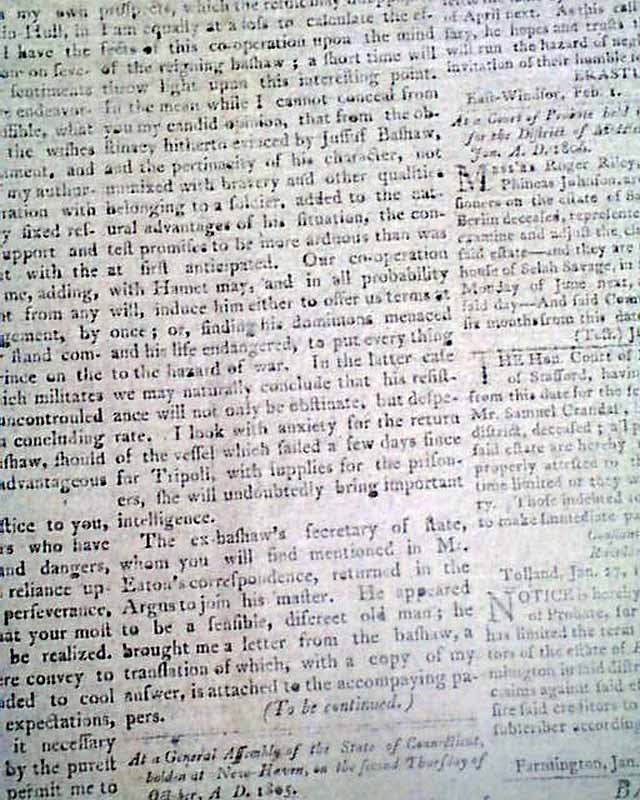 my own prospects, which the result may
in Hull, in
I have the
sentiments
endeavor-
sible, what
the wishes
ment, and
my author-
ration with
y fixed ref-
upport and
t with the
me, adding,
t from any
gement, by
stand com-
rince on the
ich militates
uncontrouled
a concluding
ashaw, should
advantageous
stice to you,
rs who have
and dangers,
reliance up-
perseverance,
at your most
be realized.
ere convey to
aded to cool
expectations,
it necessary
by the purest
permit me to
I am equally at a loss to calculate the ef-
fects of this co-operation upon the mind
of the reigning bashaw; a short time will
throw light upon this interesting point.
In the mean while I cannot conceal from
you my candid opinion, that from the ob-
stinacy hitherto evinced by Jussuf Bashaw,
and the pertinacity of his character, not
unmixed with bravery and other qualities
belonging to a soldier, added to the nat-
ural advantages of his situation, the con-
test promises to be more arduous than was
at first anticipated. Our co-operation
with Hamet may, and in all probability
will, induce him either to offer us terms at
once; or, finding his dominions menaced
and his life endangered, to put every thing
to the hazard of war. In the latter case
we may naturally conclude that his resist-
ance will not only be obstinate, but despe-
rate. I look with anxiety for the return
of the vessel which sailed a few days since
for Tripoli, with supplies for the prison-
ers, she will undoubtedly bring important
intelligence.
The ex-bashaw's secretary of state,
whom you will find mentioned in Mr.
Eaton's correspondence, returned in the
Argus to join his master. He appeared
to be a sensible, discreet old man; he
brought me a letter from the bashaw, a
translation of which, with a copy of my
answer, is attached to the accompaying pa-
pers.
(To be continued.)
At a General Assembly of the State of Connecticut,
holden at New-Haven, on the second Thursday of
October, A. D. 1805.
of April next. As this call
sary, he hopes and trusts
will run the hazard of neg
invitation of their humble
ERAST
East-Windsor, Feb. 1.
At a Court of Probate held
for the District of
Jan. A. D. 1806.
Roger Riley
Phineas Johnson, are
sioners on the estate of
Berlin deceased, represent
examine and adjust the
said estate—and they are
house of Selah Savage, in
Monday of June next,
said day—And said Com
six months from this date
(Test.)
THE Hon. Court of
of Stafford, having
from this date for the
Mr. Samuel Crandal,
district, deceased;
said estate are hereby
properly attested to th
time limited or they
ry. Those indebted
to make immediate p
Tolland, Jan. 27,
NOTICE is hereby
of Probate, for
has limited the term
tors of the estate of
mington in said distri
claims against said
said creditors to
subscriber accordin
Farmington, Jan.
B